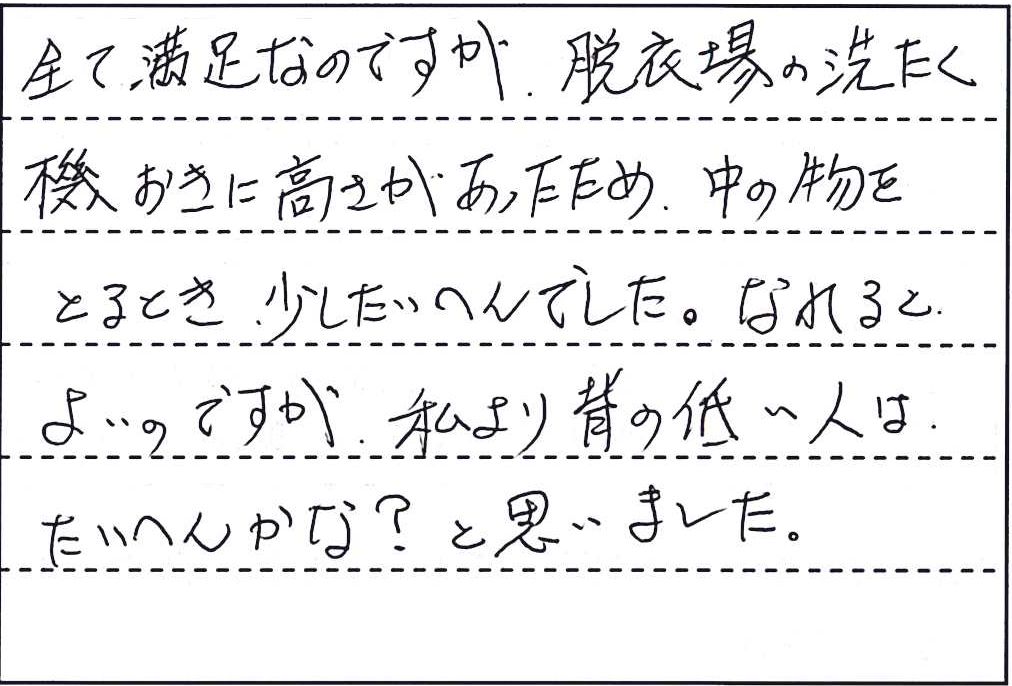 全て満足なのですが、脱衣場の洗たく
機おきに高さがあったため、中の物を
とるとき、少したいへんでした。なれると、
よいのですが、私より背の低い人は、
たいへんかな？と思いました。